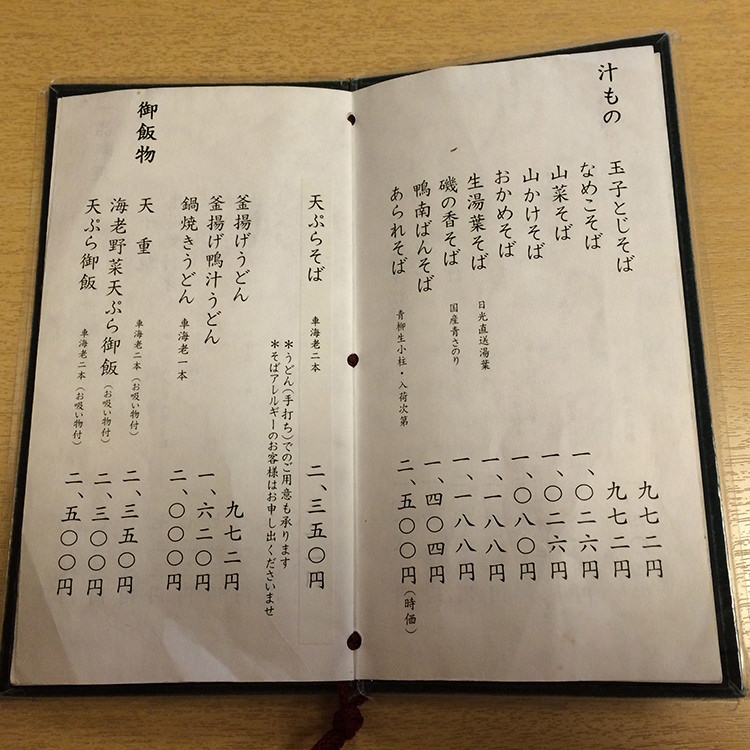 汁もの
玉子とじそば 九七二円
なめこそば 九七二円
山菜そば 一、〇二六円
山かけそば 一、〇二六円
おかめそば 一、〇八〇円
生湯葉そば 日光直送湯葉 一、一八八円
磯の香そば 国産青さのり 一、一八八円
鴨南ばんそば 一、四〇四円
あられそば 青柳生小柱・入荷次第 二、五〇〇円(時価)
天ぷらそば 車海老二本 二、三五〇円
*うどん(手打ち)でのご用意も承ります
*そばアレルギーのお客様はお申し出くださいませ
釜揚げうどん 九七二円
釜揚げ鴨汁うどん 一、六二〇円
鍋焼きうどん 車海老一本 二、〇〇〇円
御飯物
天重 車海老二本(お吸い物付) 二、三五〇円
海老野菜天ぷら御飯(お吸い物付) 二、三〇〇円
天ぷら御飯 車海老二本(お吸い物付) 二、五〇〇円